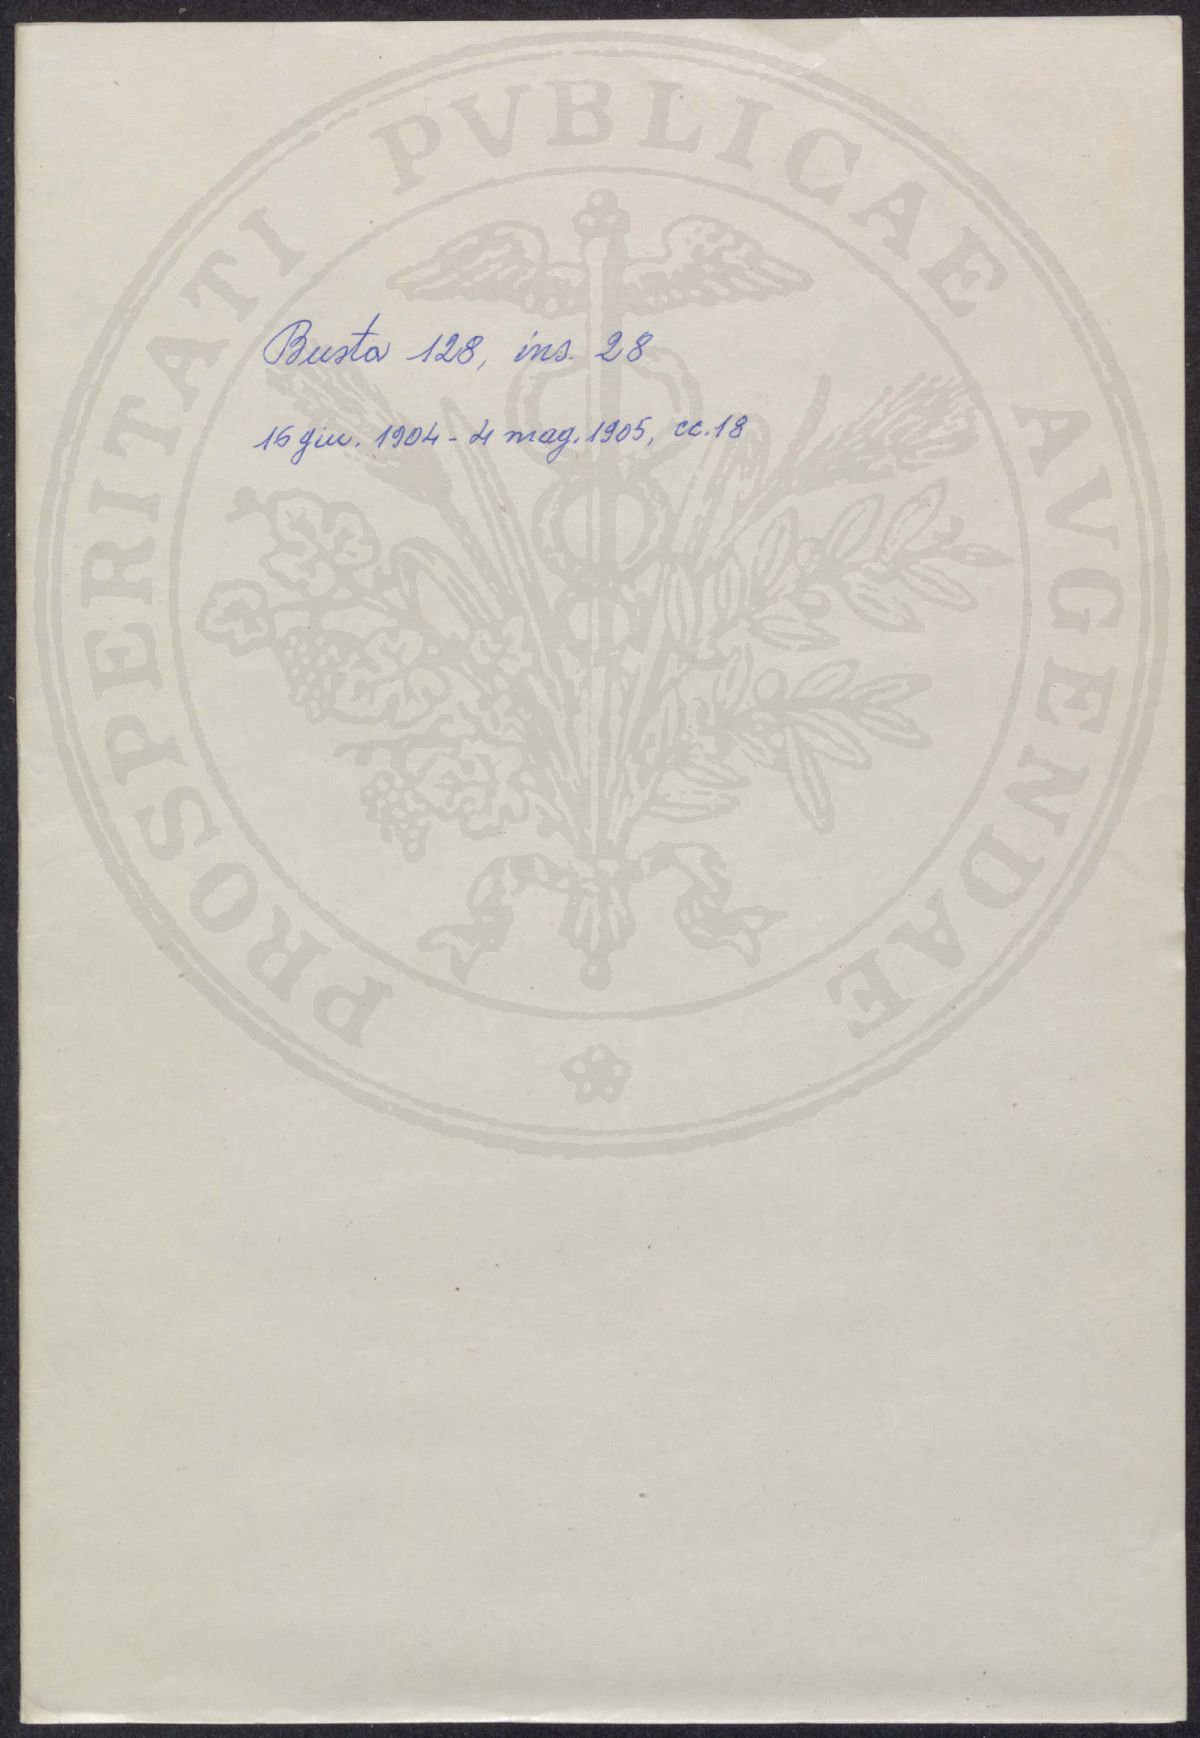 PROSPERITATI PVBLICAE AVGENDAE
Busta 128, ins. 28
16 giu. 1904 - 4 mag. 1905, cc. 18